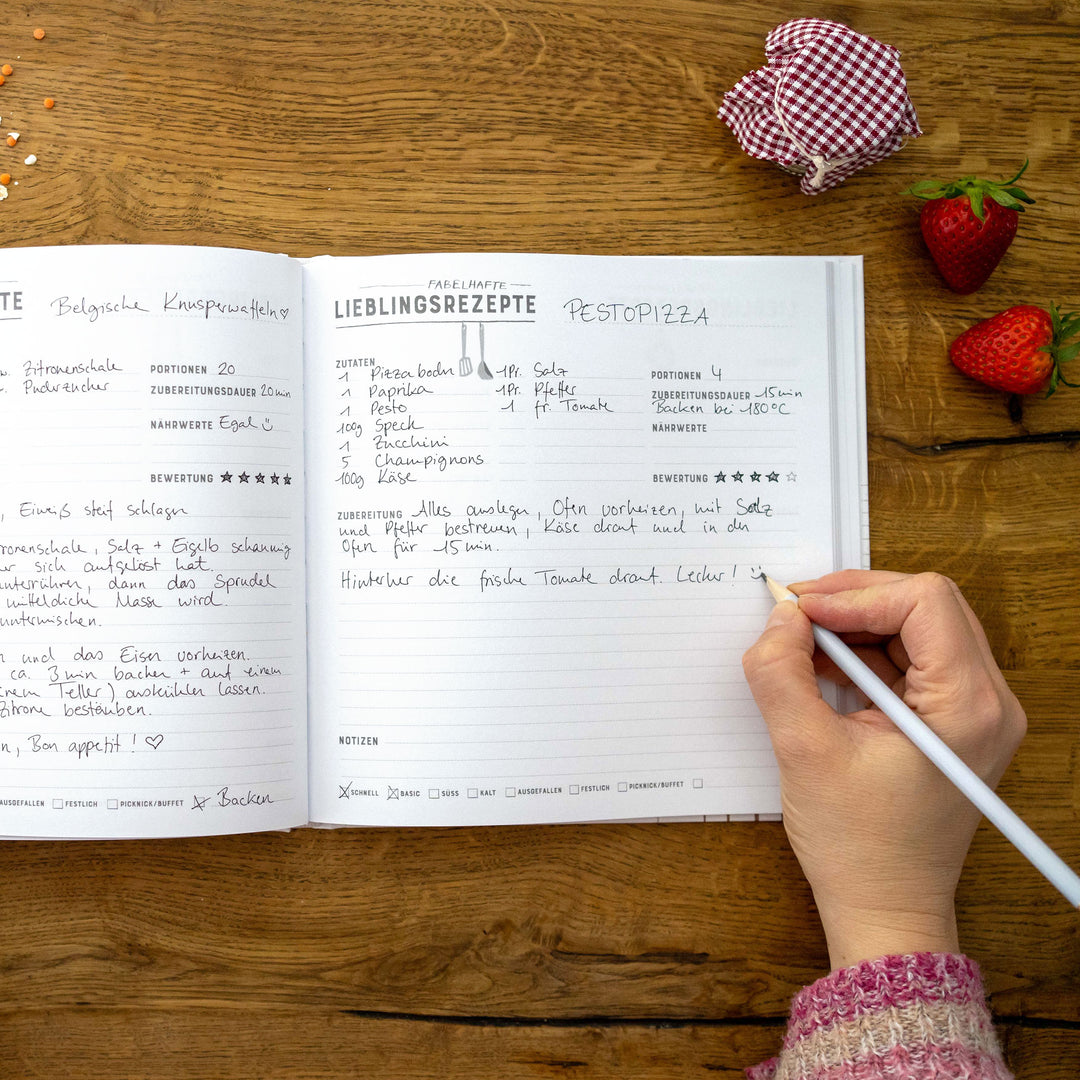 TE
Belgische Knusperwaffeln
Zitronenschale
Puderzucker
PORTIONEN 20
ZUBEREITUNGSDAUER 20 min
NÄHRWERTE Egal
BEWERTUNG
, Eiweiß steif schlagen
ronenschale, Salz + Eigelb schaumig
er sich aufgelöst hat.
unterrühren, dann das Sprudel
mitteldicke Masse wird.
untermischen.
n und das Eisen vorheizen.
ca. 3 min backen + auf einem
inem Teller) auskühlen lassen.
Zitrone bestäuben.
n, Bon appetit! ♡
AUSGEFALLEN FESTLICH PICKNICK/BUFFET Backen
FABELHAFTE
LIEBLINGSREZEPTE
PESTOPIZZA
ZUTATEN
1 Pizzabodn
1 Paprika
1 Pesto
100g Speck
1 Zucchini
5 Champignons
100g Käse
1Pr. Salz
1Pr. Pfeffer
1 fr. Tomate
PORTIONEN 4
ZUBEREITUNGSDAUER 15 min
Backen bei 180°C
NÄHRWERTE
BEWERTUNG
ZUBEREITUNG Alles auslegen, Ofen vorheizen, mit Salz
und Pfeffer bestreuen, Käse drauf und in den
Ofen für 15 min.
Hinterher die frische Tomate drauf. Lecker!
NOTIZEN
SCHNELL BASIC SÜSS KALT AUSGEFALLEN FESTLICH PICKNICK/BUFFET